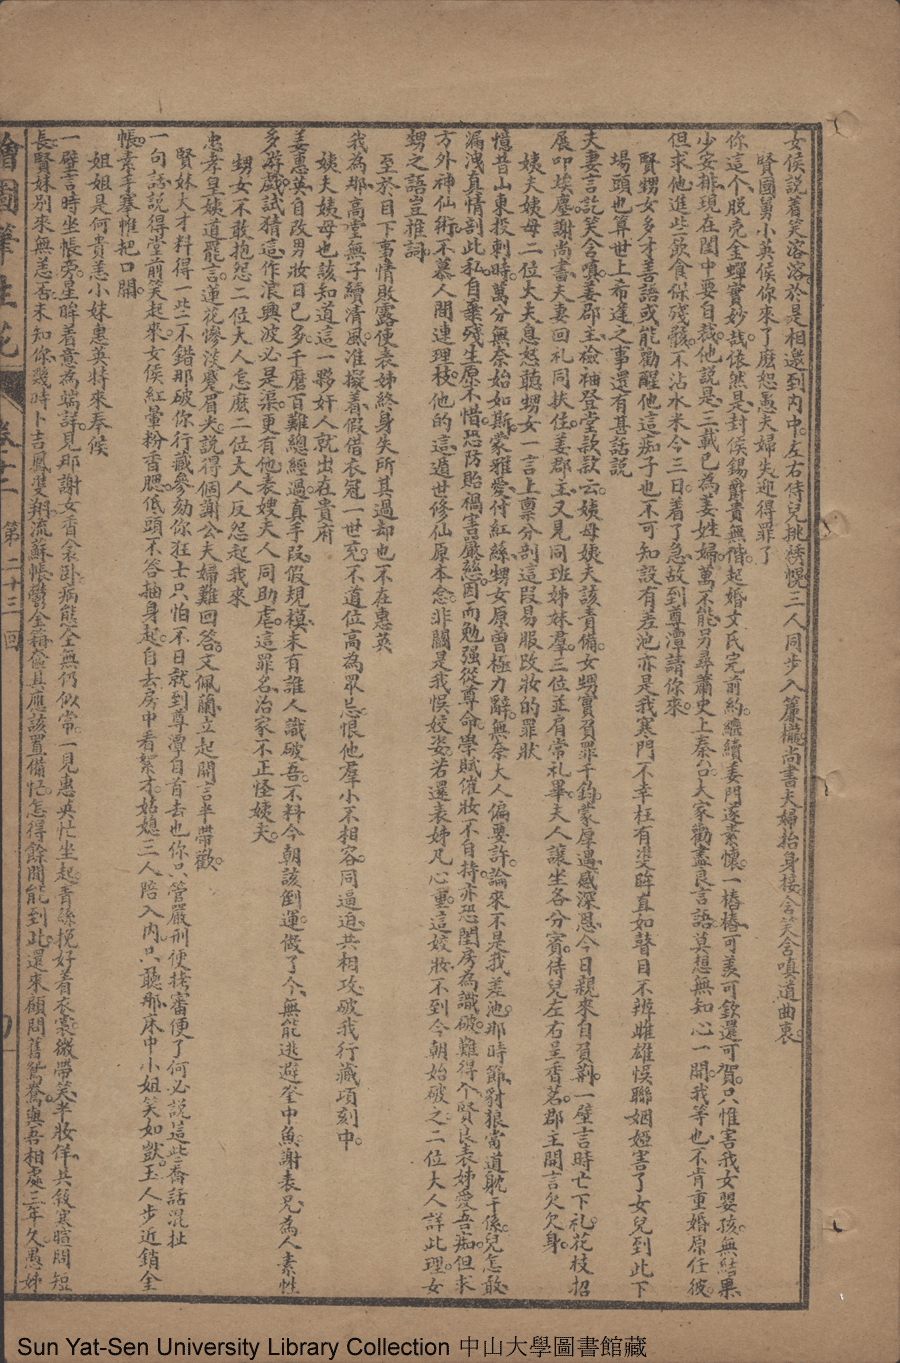 女侯説着笑溶溶於是相邀到内中左右侍兒挑綉幌三人同步入簾櫳尚書夫婦抬身接含笑含嗔道曲衷
賢國舅小英侯你来了麽恕愚夫婦失迎得罪了
你這个脱壳金蟬實妙哉依然是封侯錫爵貴無偕起婚文氏完前約繼續姜門遂素懷一樁樁可羨可欽還可賀只惟害我女嬰孩無結果
少安排現在閨中要自裁他説是三載已為姜姓婦萬不能另尋蕭史上秦台大家勸盡良言語莫想無知心一開我等也不肯重婚原任彼
但求他進些飲食保殘骸不沾水米今三日着了急故到尊潭請你來
賢甥女多才善語或能勸醒他這痴子也不可知設有差池亦是我寒門不幸枉有雙眸直如瞽目不辨雌雄悞聯姻婭害了女兒到此下
場頭也算世上希逢之事還有甚話説
夫妻言訖笑含嗔姜郡主襝袖登堂款款云姨母姨夫該責備女甥實負罪千鈞蒙厚遇感深恩今日親來自負荊一壁言時亡下礼花枝招
展叩埃塵謝尚書夫妻回礼同扶住姜郡主又見同班姊妹羣三位並肩常礼畢夫人讓坐各分賓侍兒左右呈香茗郡主開言欠欠身
姨夫姨母二位大夫息怒聽甥女一言上禀分剖這叚易服改妝的罪狀
憶昔山東投刺時萬分無奈始如斯蒙雅愛付紅絲甥女原曾極力辭無奈大人偏要許論來不是我差池那時節豺狼當道躭干係兒怎敢
漏洩真情剖此私自棄殘生原不惜恐防貽禍害嚴慈因而勉强從尊命學賦催妝不自持亦恐閨房為識破難得个賢良表姊愛吾痴但求
方外神仙術不慕人間連理枝他的這遁世修仙原本念非關是我悞姣姿若還表姊凡心重這姣妝不到今朝始破之二位大人詳此理女
甥之語豈推詞
至於目下事情敗露便表姊終身失所其過却也不在惠英
我為那高堂無子續清風准擬着假借衣冠一世充不道位高為眾忌恨他羣小不相容同逼迫共相攻破我行藏頃刻中
姨夫姨母也該知道這一夥奸人就出在貴府
姜惠英自改男妝日已多千磨百難總經過真手叚假規模未有誰人識破吾不料今朝該倒運做了今無能逃避釜中魚謝表兄為人素性
多游戯試猜這作浪興波必是渠更有他表嫂夫人同助虐這罪名治家不正怪姨夫
甥女不敢抱怨二位大人怎麽二位大人反怨起我來
忠孝皇姨道罷言蓮花慘淡蹙眉尖説得個謝公夫婦難回答文佩蘭立起開言半帶歡
賢妹大才料得一些不錯那破你行藏參劾你狂士只怕不日就到尊潭自首去也你只管嚴刑便拷審便了何必説這些喬話混扯
一句話説得堂前笑起來女侯紅暈粉香腮低頭不答抽身起自去房中看絮才姑媳三人陪入内只聽那床中小姐笑如獃玉人步近銷金
帳素手搴帷把口開
姐姐是何貴恙小妹惠英特來奉候
一壁言時坐帳旁星眸着意為端詳見那謝女香衾卧病態全無仍似常一見惠英忙坐起青絲挽好着衣裳微帶笑半妝佯共敍寒暄問短
長賢妹别來無恙否未知你幾時卜吉鳳雙翔流蘇帳鬱金箱奩具應該置備忙怎得餘閒能到此還來顧問舊鴛鴦與吾相處三年久愚姊
繪圖筆生花 卷十二 第二十三回
Sun Yat-Sen University Library Collection 中山大學圖書館藏